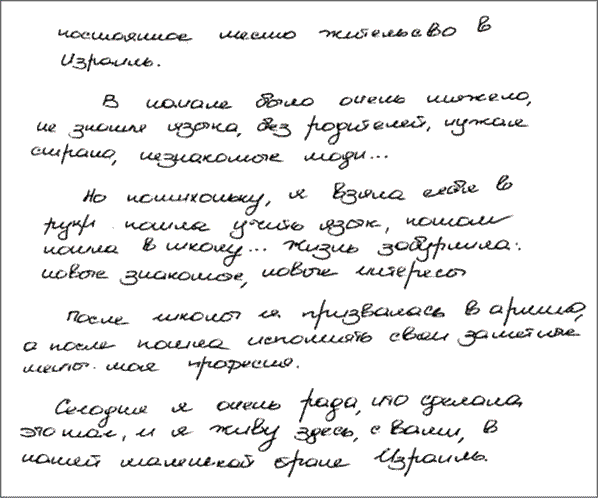 постоянное место жительсво в
Израиль.
В начале было очень тяжело,
не знание языка, без родителей, чужая
страна, незнакомые люди...
Но потихоньку, я взяла себя в
руки пошла учить язык, потом
пошла в школу... Жизнь забурлила:
новые знакомые, новые интересы
После школы я призвалась в армию,
а после пошла исполнять свои заметные
мечты моя професия.
Сегодня я очень рада, что сделала
это шаг, и я живу здесь, с вами, в
нашей маленькой стране Израиль.